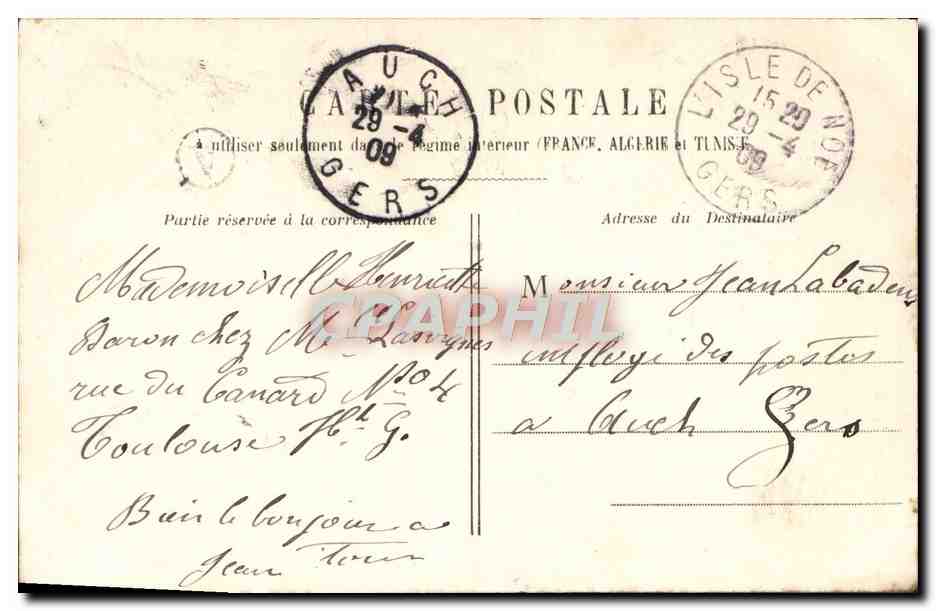 CARTE POSTALE
à utiliser seulement dans le régime intérieur (FRANCE, ALGERIE et TUNISIE
AUCH
29 -4
09
GERS
L'ISLE DE NOE
15 29
29 -4
09
GERS
A
Partie réservée à la correspondance
Mademoiselle Henriette
Baron chez Me
rue du Canard No 4
Toulouse Hte G.
Bien le bonjour a
Jean
Adresse du Destinataire
Monsieur Jean Labadens
employé des postes
a Auch Gers
CPAPHIL